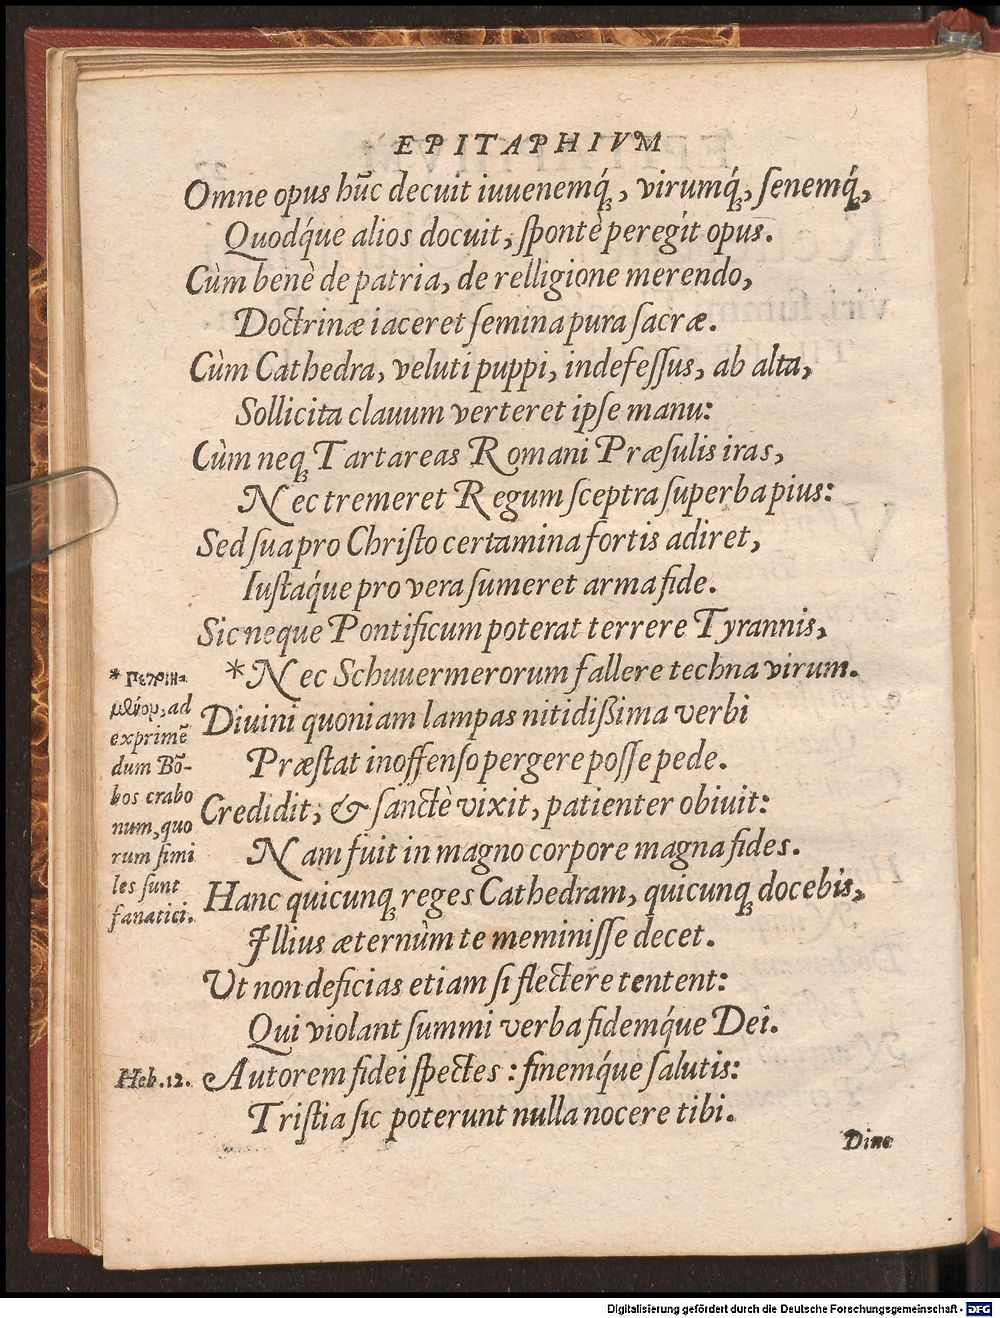 EPITAPHIVM
Omne opus hūc decuit iuuenemq́ꝫ, virumq́ꝫ, senemq́ꝫ,
Quodq́ue alios docuit, spontè peregit opus.
Cùm benè de patria, de relligione merendo,
Doctrinæ iaceret semina pura sacræ.
Cùm Cathedra, veluti puppi, indefessus, ab alta,
Sollicita clauum verteret ipse manu:
Cùm neqꝫ Tartareas Romani Præsulis iras,
Nec tremeret Regum sceptra superba pius:
Sed sua pro Christo certamina fortis adiret,
Iustaq́ue pro vera sumeret arma fide.
Sic neque Pontificum poterat terrere Tyrannis,
*Nec Schuuermerorum fallere techna virum.
Diuini quoniam lampas nitidißima verbi
Præstat inoffenso pergere posse pede.
Credidit, & sanctè vixit, patienter obiuit:
Nam fuit in magno corpore magna fides.
Hanc quicunqꝫ reges Cathedram, quicunqꝫ docebis,
Illius æternùm te meminisse decet.
Ut non deficias etiam si flectere tentent:
Qui violant summi verba fidemq́ue Dei.
Autorem fidei spectes: finemq́ue salutis:
Tristia sic poterunt nulla nocere tibi.
ad
exprimē
dum Bō-
bos crabo
num, quo
rum simi
les sunt
fanatici.
Heb. 12.
Dine